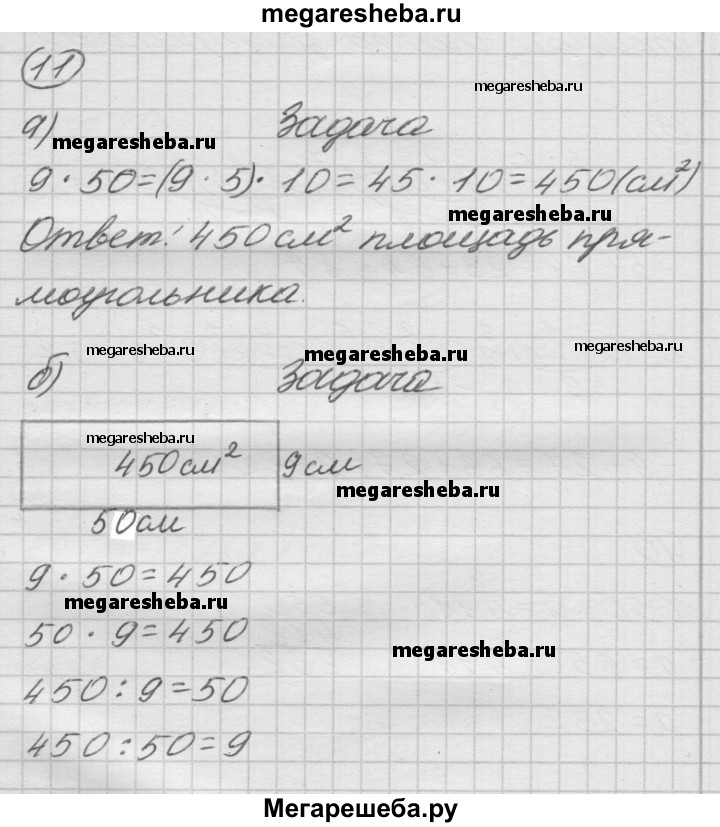 megaresheba.ru
11
megaresheba.ru
а) Задача
megaresheba.ru
9 · 50 = (9 · 5) · 10 = 45 · 10 = 450 (см²)
megaresheba.ru
Ответ: 450 см² площадь пря-
моугольника.
megaresheba.ru megaresheba.ru megaresheba.ru
б) Задача
megaresheba.ru
450 см² 9 см
megaresheba.ru
50 см
9 · 50 = 450
megaresheba.ru
50 · 9 = 450
megaresheba.ru
450 : 9 = 50
450 : 50 = 9
Мегарешеба.ру